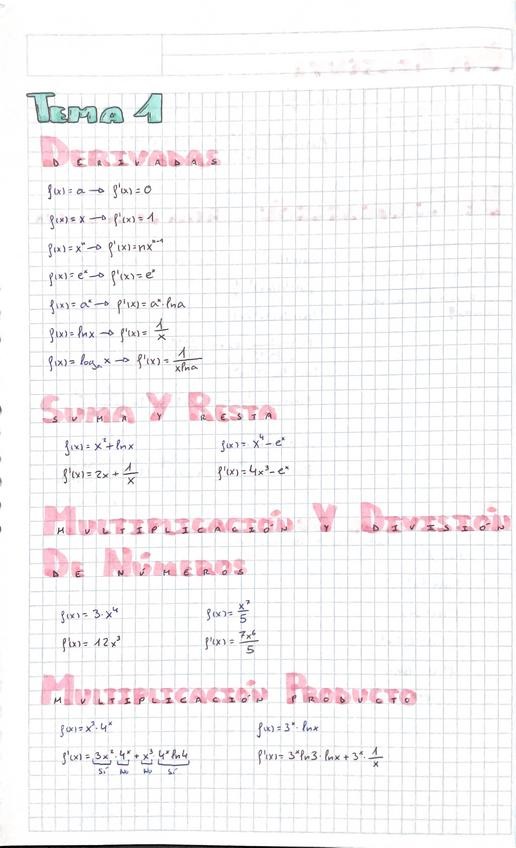 TEMA 1
DERIVADAS
f(x) = a → f'(x) = 0
f(x) = x → f'(x) = 1
f(x) = xⁿ → f'(x) = nxⁿ⁻¹
f(x) = eˣ → f'(x) = eˣ
f(x) = aˣ → f'(x) = aˣ · lna
f(x) = lnx → f'(x) = 1/x
f(x) = logₐx → f'(x) = 1/xlna
SUMA Y RESTA
f(x) = x² + lnx f(x) = x⁴ - eˣ
f'(x) = 2x + 1/x f'(x) = 4x³ - eˣ
MULTIPLICACIÓN Y DIVISIÓN
DE NÚMEROS
f(x) = 3 · x⁴ f(x) = x⁷/5
f'(x) = 12x³ f'(x) = 7x⁶/5
MULTIPLICACIÓN PRODUCTO
f(x) = x³ · 4ˣ f(x) = 3ˣ · lnx
f'(x) = 3x² · 4ˣ + x³ · 4ˣ ln4 f'(x) = 3ˣ ln3 · lnx + 3ˣ · 1/x
Sí No No Sí